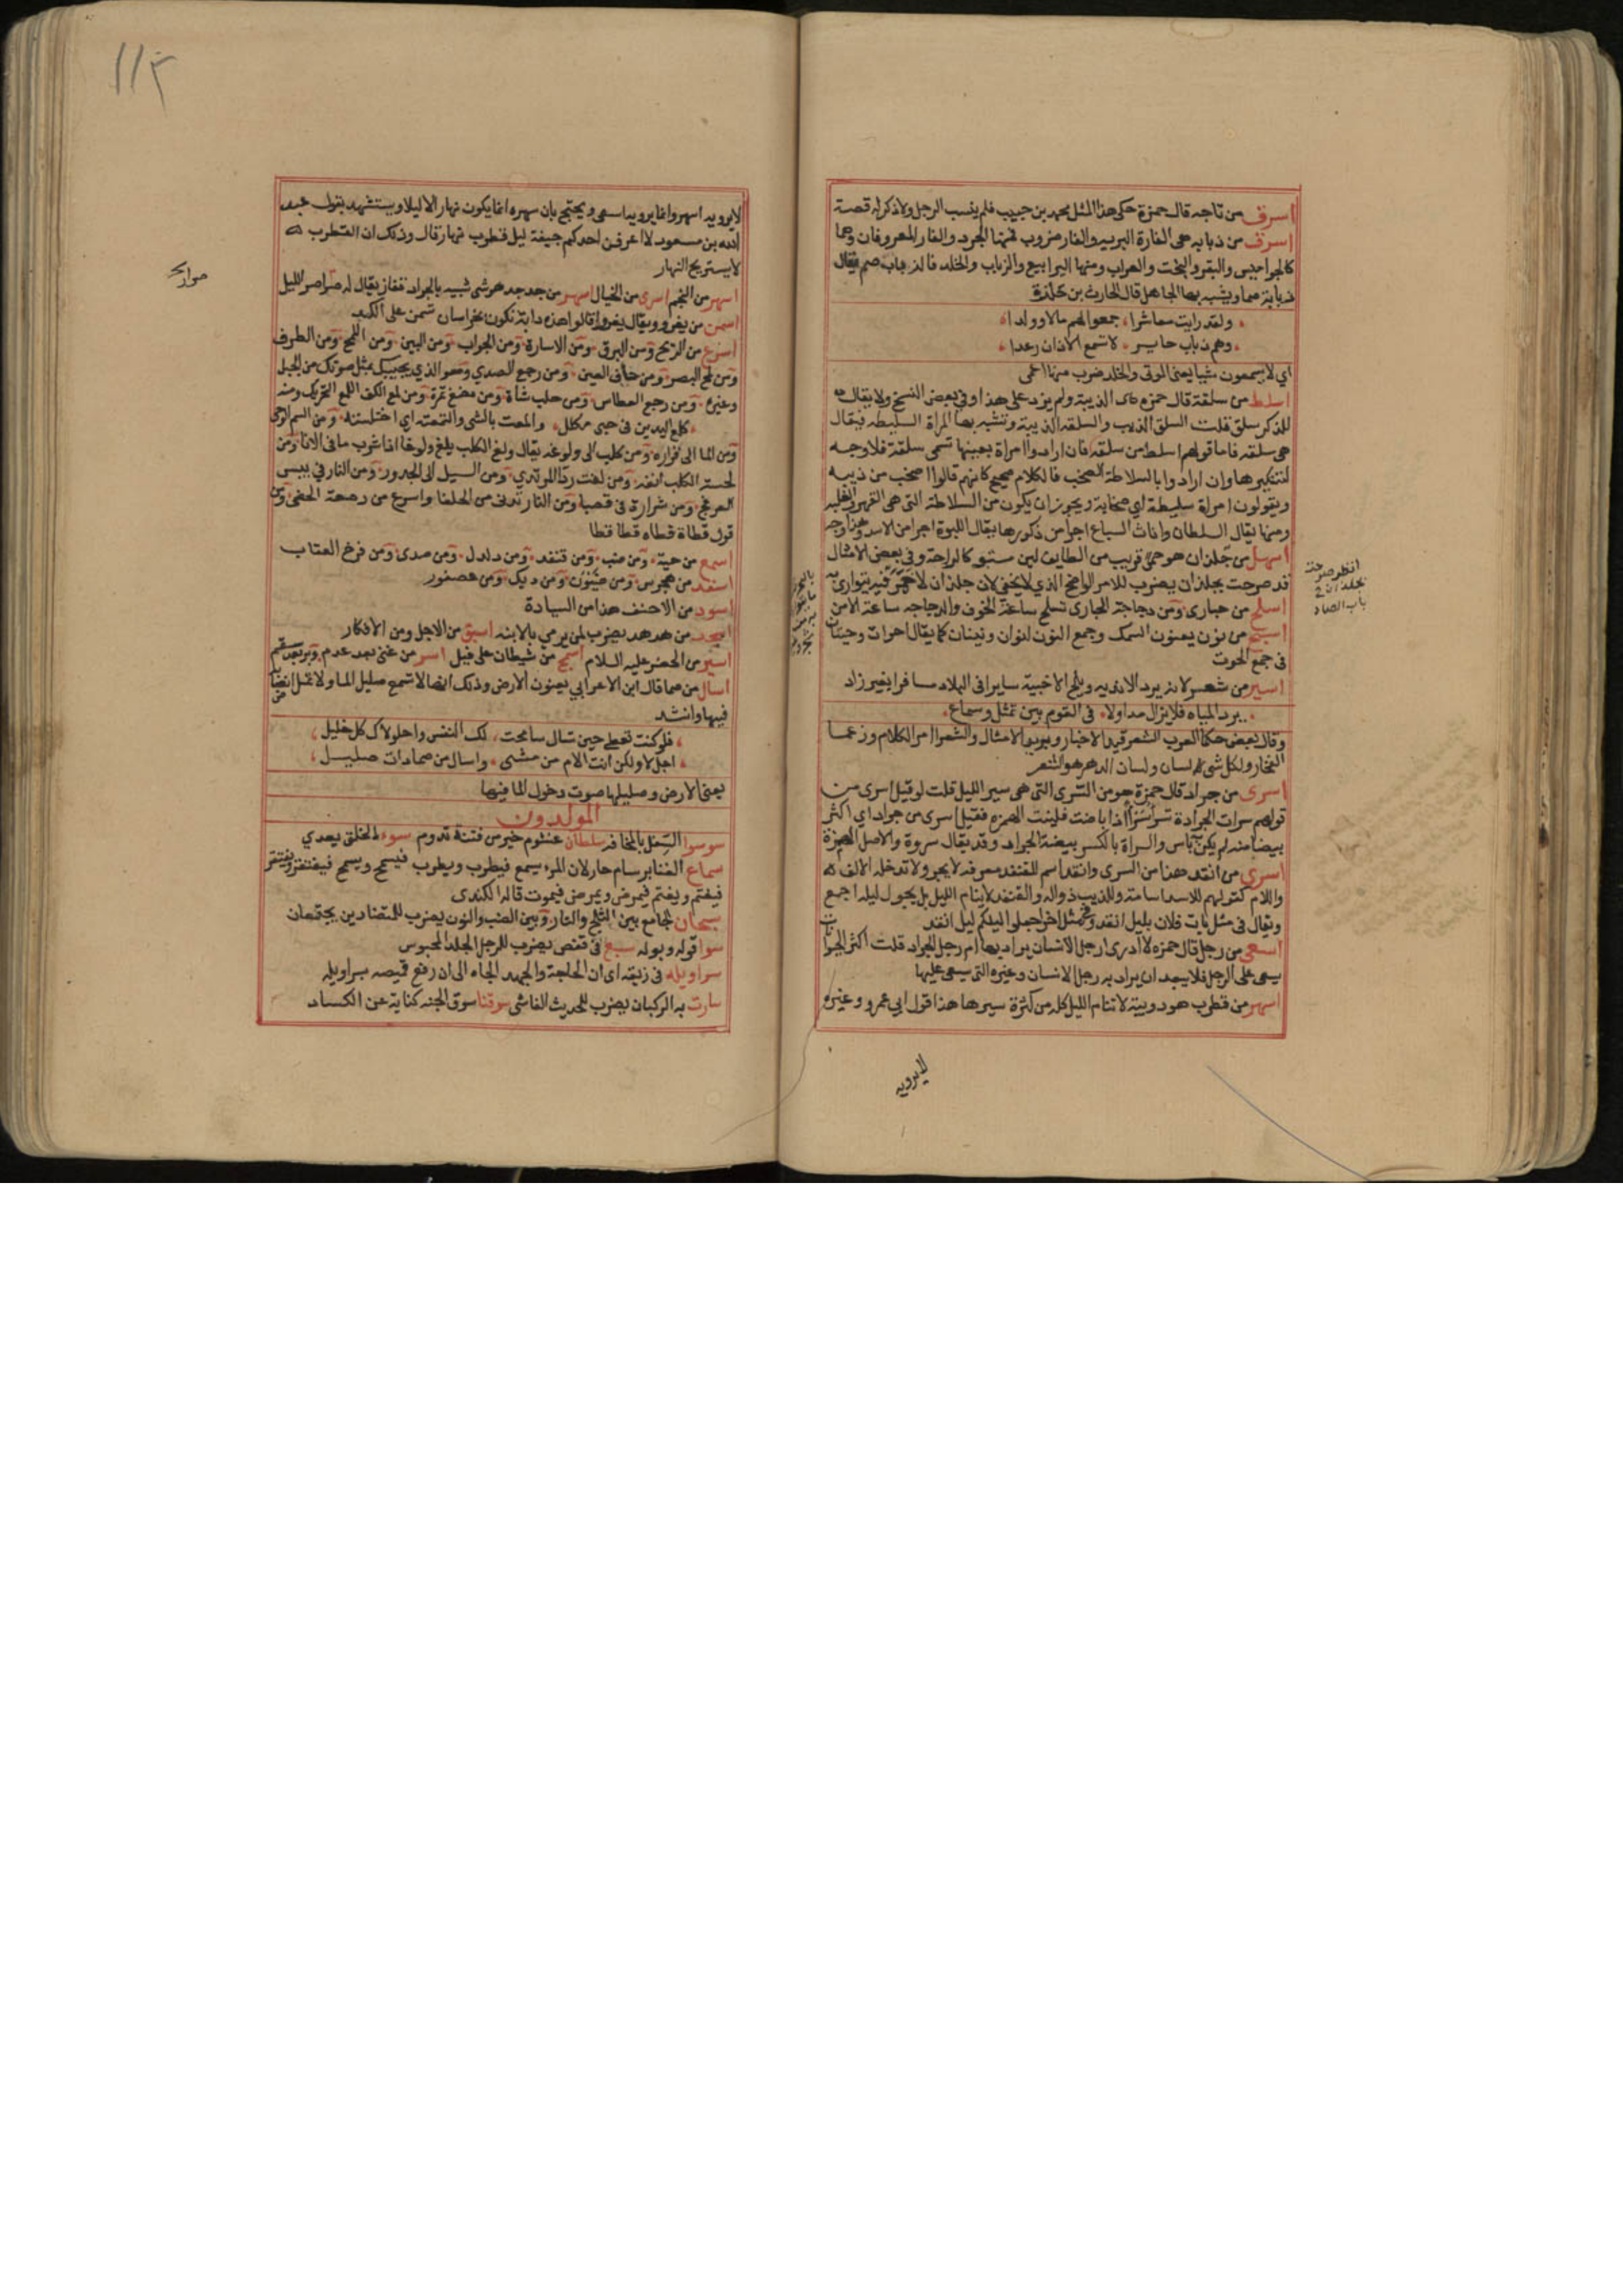 اسرق من تاجه قال حمزة حكى هذا المثل محمد بن حبيب فلم ينسب الرجل ولا ذكر له قصة
اسرق من زبابه هى الفارة البريه والفار ضروب فمنها الجرد والفار المعروفان وهما
كالجواميس والبقر والبخت والعراب ومنها اليرابيع والزباب والخلد فالزباب صم يقال
زبابة صما ويشبه بها الجاهل قال الحارث بن حلزة
ولقد رايت معاشرا جمعوا لهم مالا وولدا
وهم زباب حاير لا تسمع الاذان رعدا
اي لا يسمعون شيا يعنى الموتى والخلد ضرب منها اعمى
اسلط من سلقة قال حمزه هى الذيبة ولم يزد على هذا وفي بعض النسخ ولا يقال
للذكر سلق قلت السلق الذيب والسلقه الذيبة وتشبه بها المراة السليطه فيقال
هى سلقه فاما قولهم اسلط من سلقة فان ارادوا امراة بعينها تسمى سلقة فلا وجه
لتنكيرها وان ارادوا بالسلاطة الصخب فالكلام صحيح كانهم قالوا اصخب من ذيبه
ويقولون امراة سليطة اي صخابة ويجوز ان يكون من السلاطة التى هى القهر والغلبه
ومنها يقال السلطان واناث السباع اجرا من ذكورها يقال اللبوة اجرا من الاسد وهذا وجه
اسهل من جلذان هو حمى قريب من الطايف لين مستو كالراحة وفي بعض الامثال
قد صرحت بجلذان يضرب للامر الواضح الذي لا يخفى لان جلذان لا خمر فيه يتوارى به
اسلح من حبارى ومن دجاجة الحبارى تسلح ساعة الخوف والدجاجه ساعة الامن
اسبح من نون يعنون السمك وجمع النون انوان ونينان كما يقال احوات وحيتان
فى جمع الحوت
اسير من شعر لانه يرد الاندية ويلج الاخبية سايرا فى البلاد مسافرا بغير زاد
يرد المياه فلا يزال مداولا فى القوم بين تمثل وسماع
وقال بعض حكما العرب الشعر قيد الاخبار وبريد الامثال والشعرا امرا الكلام وزعما
الفخار ولكل شى لسان ولسان الدهر هو الشعر
اسرى من جراد قال حمزة هو من السرى التى هى سير الليل قلت لو قيل اسرى من
قولهم سرات الجرادة تسرا سرا اذا باضت فلينت الهمزه فقيل اسرى من جراد اي اكثر
بيضا منه لم يكن باس والسراة بالكسر بيضة الجراد وقد يقال سروة والاصل الهمزة
اسرى من انقد هذا من السرى وانقد اسم للقنفد معرفه لا يجر ولا تدخله الالف
واللام كقولهم للاسد اسامة وللذيب ذواله والقنفد لا ينام الليل بل يجول ليله اجمع
ويقال فى مثل بات فلان بليل انقد وفى مثل اخر اجعلوا ليلكم ليل انقد
اسعى من رجل قال حمزه لا ادرى ارجل الانسان يراد بها ام رجل الجراد قلت اكثر الحيوانات
يسعى على الرجل فلا يبعد ان يراد به رجل الانسان وغيره التى يسعى عليها
اسهر من قطرب هو دويبة لا تنام الليل كله من كثرة سيرها هذا قول ابى عمرو وغيره
لا يرويه
انظر صرحت
بجلذان فى
باب الصاد
لا يرويه اسهر وانما يرويه اسعى ويحتج بان سهره انما يكون نهارا لا ليلا ويستشهد بقول عبد
الله بن مسعود لا اعرفن احدكم جيفة ليل قطرب نهار قال وذلك ان القطرب
لا يستريح النهار
اسهر من النجم اسرى من الخيال اسهر من جدجد هو شى شبيه بالجراد قفاز يقال له صرار الليل
اسمن من يغر ويقال يغرو قالوا هذه دابة تكون بخراسان تسمن على الكد
اسرع من الريح ومن البرق ومن الاشارة ومن الجواب ومن البين ومن اللمح ومن الطرف
ومن لمح البصر ومن حاق العين ومن رجع الصدى وهو الذي يجيبك بمثل صوتك من الجبل
وغيره ومن رجع العطاس ومن حلب شاة ومن مضغ تمرة ومن لمع الكف اللمع التحريك ومنه
كلمع اليدين فى حبى مكلل والمعت بالشى والتمعته اي اختلسته ومن السم الوحى
ومن الما الى قراره ومن كلب الى ولوغه يقال ولغ الكلب يلغ ولوغا اذا شرب ما فى الانا ومن
لحسة الكلب انفه ومن لفت رداالمرتدي ومن السيل الى الحدور ومن النار في يبيس
العرفج ومن شرارة فى قصبا ومن النار تدنى من الحلفا واسرع من دمعة الخصى ومن
قول قطاة قطاه قطا قطا
اسمع من حية ومن ضب ومن قنفد ومن دلدل ومن صدى ومن فرخ العقاب
اسفد من هجرس ومن ضيون ومن ديك ومن عصفور
اسود من الاحنف هذا من السيادة
اسجد من هدهد يضرب لمن يرمي بالابنه اسبق من الاجل ومن الافكار
اسير من الخضر عليه السلام اسمج من شيطان على فيل اسر من غنى بعد عدم وبرء بعد سقم
اسال من صما قال ابن الاعرابي يعنون الارض وذلك انها لا تسمع صليل الما ولا تمل انصبابه
فيها وانشد
فلو كنت تعطى حين تسال سامحت لك النفس واحلولاك كل خليل
اجل لا ولكن انت الام من مشى واسال من صما ذات صليل
يعنى الارض وصليلها صوت دخول الما فيها
المولدون
سوسوا السفل بالمخافه سلطان غشوم خير من فتنة تدوم سوء الخلق يعدي
سماع الغنا برسام حار لان المرء يسمع فيطرب ويطرب فيسمح ويسمح فيفتقر ويفتقر
فيغتم ويغتم فيمرض ويمرض فيموت قاله الكندى
سبحان الجامع بين الثلج والنار وبين الضب والنون يضرب للمتضادين يجتمعان
سوا قوله وبوله سبع فى قفص يضرب للرجل الجلد المحبوس
سراويله فى زيقه اى ان الحاجة والجهد الجاه الى ان رفع قميصه بسراويله
سارت به الركبان يضرب للحديث الفاشى سوقنا سوق الجنه كناية عن الكساد